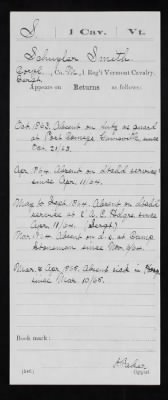 S 1 Cav. Vt.
Schuyler Smith
Corpl., Co. M., 1 Reg't Vermont Cavalry.
Sergt.
Appears on Returns as follows:
Oct. 1863. Absent on duty as guard
at Port Conway, since
Oct. 21/63.
Apr. 1864. Absent on detchd service
since Apr. 11/64.
May to Sept. 1864. Absent on detchd
service at C. A. C. Lodges since
Apr. 11/64. (Sergt.)
Nov. 1864 Absent on d.s. at Camp
Stoneman since Nov. 9/64.
Mar. & Apr. 1865. Absent sick in Hosp.
since Mar. 10/65.
Book mark:
(546)
Copyist.